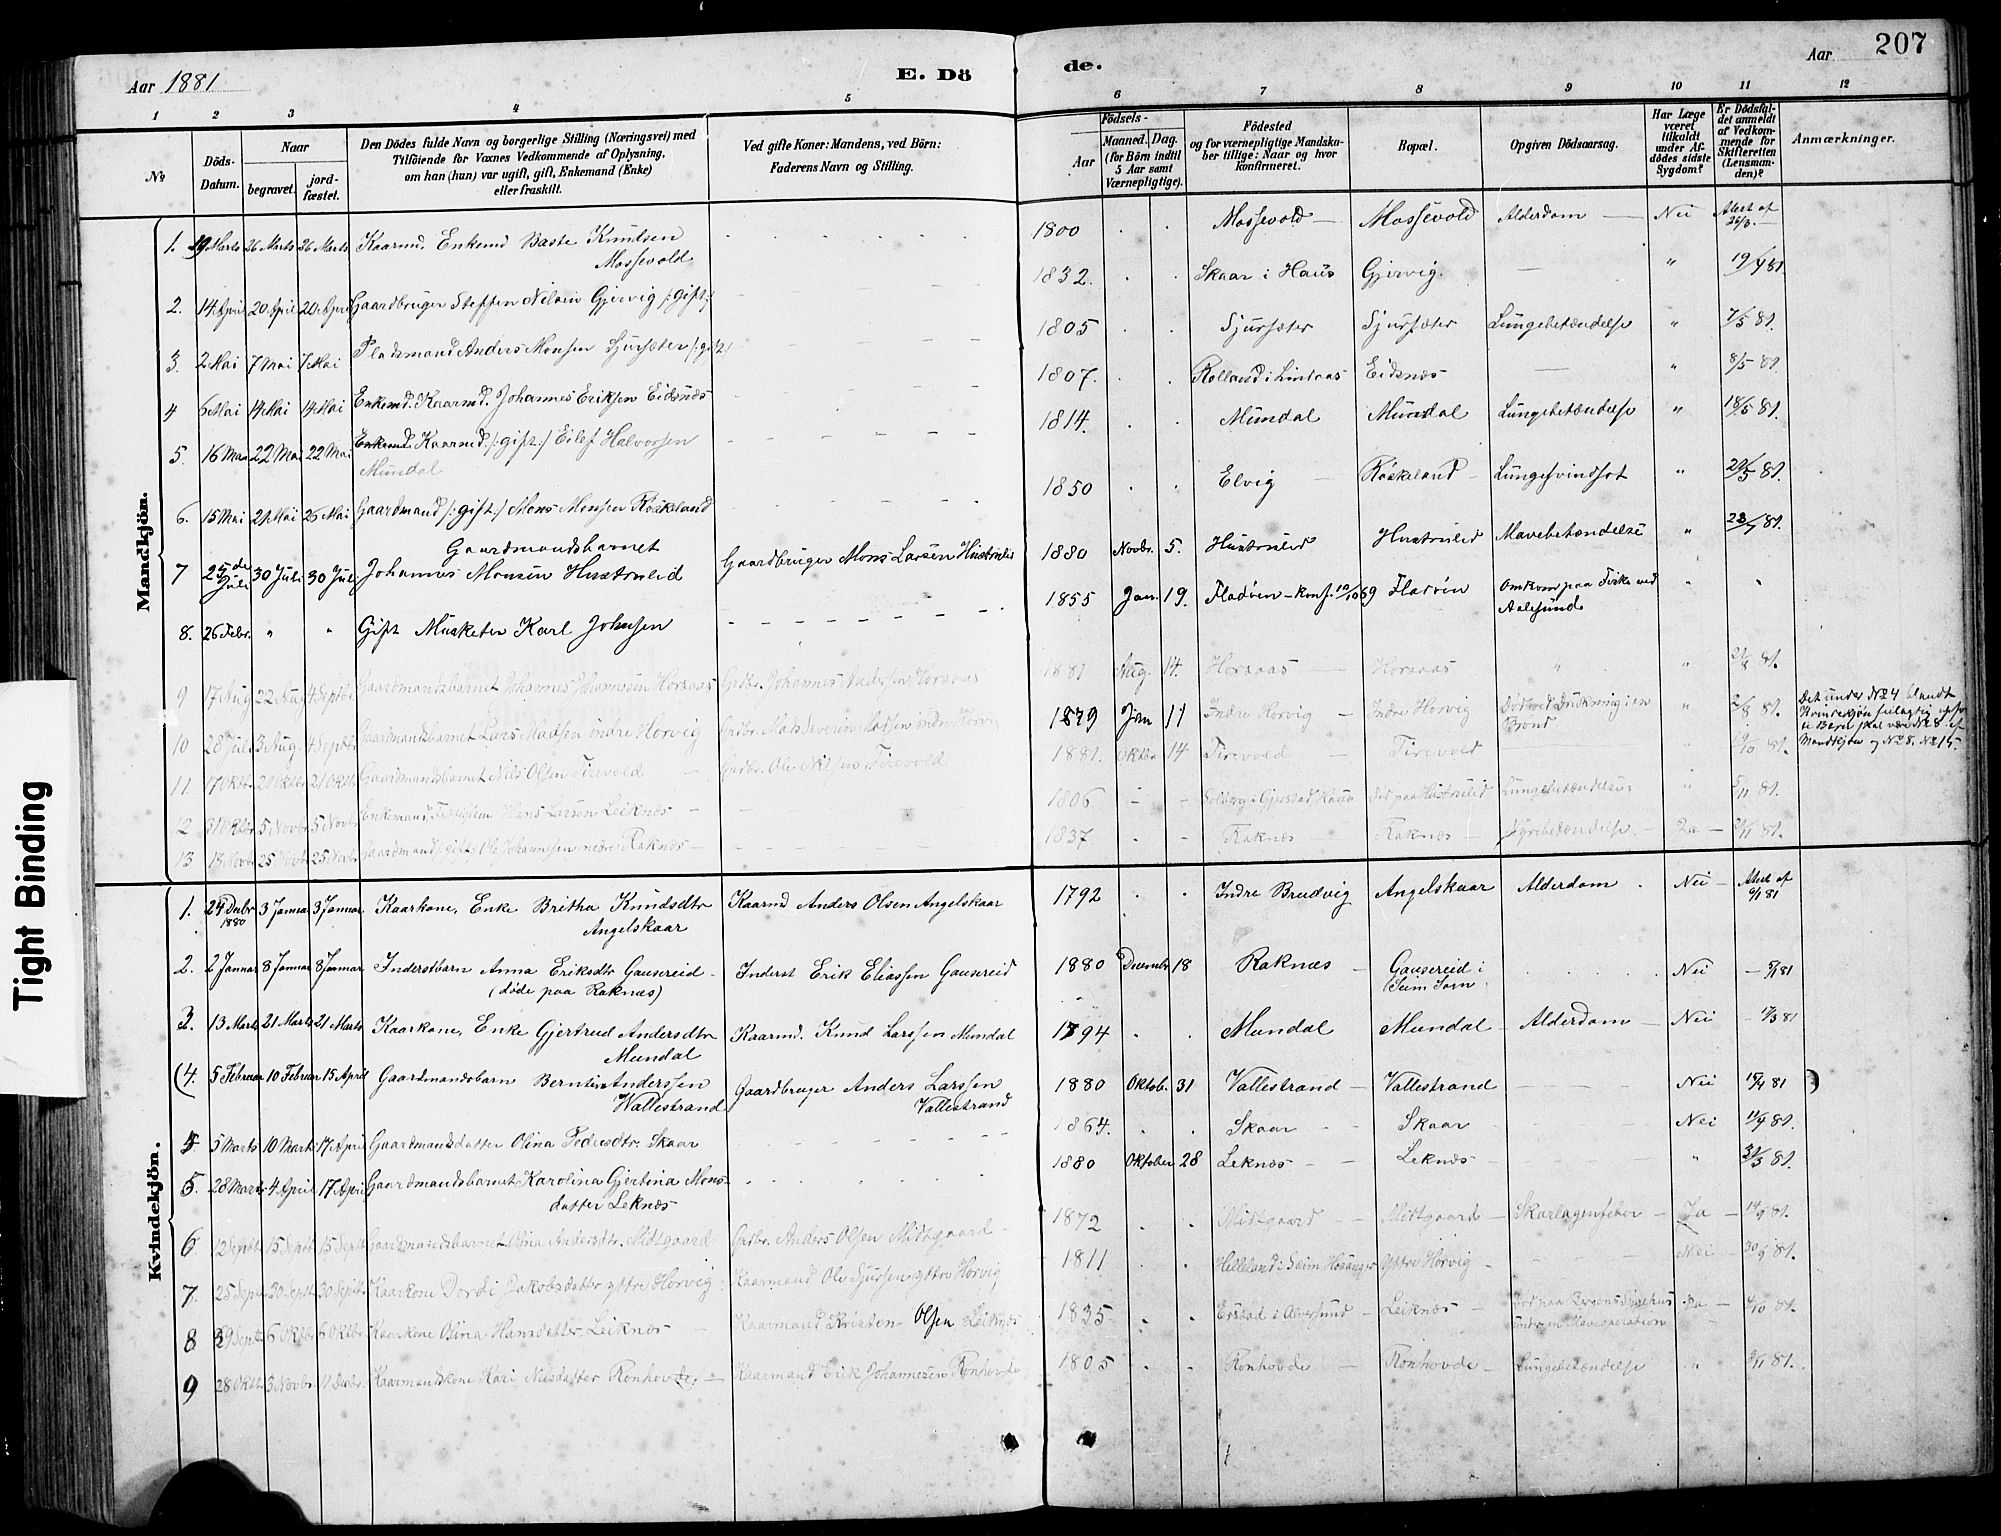 Aar 1881 E. Dö de. Aar 207
1 2 3 4 5 6 7 8 9 10 11 12
No
Döds-
Datum.
Naar
begravet.
jord-
fæstet.
Den Dödes fulde Navn og borgerlige Stilling (Næringsvei) med
Tilföiende for Vaxnes Vedkommende af Oplysning,
om han (hun) var ugift, gift, Enkemand (Enke)
eller fraskilt.
Ved gifte Koner: Mandens, ved Börn:
Faderens Navn og Stilling.
Födsels-
Aar
Maaned. Dag.
(for Börn indtil
5 Aar samt
Værnepligtige).
Födested
og for værnepligtige Mandska-
ber tillige: Naar og hvor
konfirmeret.
Bopæl.
Opgiven Dödsaarsag.
Har Læge
været
tilkaldt
under Af-
dödes sidste
Sygdom?
Er Dödsfal-
det anmeldt
af Vedkom-
mende for
Skifteretten
(Lensman-
den)?
Anmærkninger.
Mandkjön.
1. 19 Marts 26 Marts 26 Marts Kaarmd. Enkemd Baste Knudsen
Mossevold
1800 Mossevold Mossevold Alderdom Nei Attest af 26/3.
2. 14 April 20 April 20 April Gaardbruger Steffen Nilsen Gjervig /:gift:/
1832. Skaar i Haus Gjervig. " 19/4 81
3. 2 Mai 7 Mai 7 Mai Pladsmand Anders Monsen Sjursæter /:gift:/
1805 Sjursæter Sjursæter Lungebetændelse " 7/5 81.
4 6 Mai 14 Mai 14 Mai Enkemd. Kaarmd. Johannes Eriksen Eidsnæs
1807. Rolland i Lindaas Eidsnæs " 8/5 81.
5. 16 Mai 22 Mai 22 Mai Enkemd. Kaarmd. /:gift:/ Eilef Halvorsen
Mundal
1814. Mundal Mundal Lungebetændelse " 18/5 81.
6. 15 Mai 21 Mai 26 Mai Gaardmand /:gift:/ Mons Monsen Röskeland
1850 Elvig Röskeland Lungesvindsot " 20/5 81.
7 25de Juli 30 Juli 30 Juli Gaardmandsbarnet
Johannes Monsen Hustruleid Gaardbruger Mons Larsen Hustruleid
1880 Novbr. 5. Hustruleid Hustruleid Mavebetændelse " 23/7 81.
8. 26 Febr. " " Gift Musketer Karl Johnsen
1855 Jan. 19. Fladöen - konf. 10/10 69 Fladöen Omkom paa Fiske ved
Aalesund " "
9 17 Aug 22 Aug 4 Septbr. Gaardmandsbarnet Johannes Johannesen Horsaas Grdbr. Johannes Andersen Horsaas
1881 Aug. 14. Horsaas Horsaas " " 21/8 81.
10 28 Juli 3 Aug. 4 Septbr. Gaardmandsbarnet Lars Madsen indre Horvig Grdbr. Mads Severin Madsen indre Horvig
1879 Jan 11 Indre Horvig Indre Horvig Död ved Drukning i en
Brönd " 2/8 81.
Det under No 4 blandt
Kvindekjön feilagtig opfö-
Mandkjön og No 8. No 15.
11. 17 Oktbr. 21 Oktbr. 21 Oktbr. Gaardmandsbarnet Nils Olsen Tirevold Grdbr. Ole Nilsen Tirevold
1881. Oktbr 14 Tirevold Tirevold " 19/10 81.
12 31 Oktbr. 5 Novbr. 5 Novbr. Enkemand, Fattiglem Hans Larsen Leiknæs
1806 Solberg i Gjerstad, Haus Död paa Hustruleid Lungebetændelse. " 5/11 81.
13 18 Novbr. 25 Novbr. 25 Novbr. Gaardmand /:gift:/ Ole Johannesen nedre Raknæs
1837 Raknæs Raknæs Nyrebetændelse Ja 21/11 81.
Kvindekjön.
1. 29 Decbr 1880 3 Januar 3 Januar Kaarkone, Enke Britha Knudsdtr
Angelskaar Kaarmd Anders Olsen Angelskaar
1792 Indre Brudvig Angelskaar Alderdom. Nei Attest af 6/1 81
2. 2 Januar 8 Januar 8 Januar Inderstbarn Anna Eriksdtr Gausereid
(döde paa Raknæs) Inderst Erik Eliassen Gausereid
1880 Decembr 18 Raknæs Gausereid i
(Seim Sogn Nei 5/1 81
3. 13 Marts 21 Marts 21 Marts Kaarkone, Enke Gjertrud Andersdtr
Mundal Kaarmd. Knud Larssen Mundal
1794 Mundal Mundal Alderdom Nei 17/3 81
(4. 5 Februar 10 Februar 15 April Gaardmandsbarn Berntin Anderssen
Wallestrand Gaardbruger Anders Larssen
Vallestrand
1880 Oktob. 31 Vallestrand Vallestrand Nei 15/4 81 )
4. 5 Marts 10 Marts 17 April Gaardmandsdatter Olina Pedersdtr. Skaar
1864. Skaar Skaar Nei 11/4 81.
5. 28 Marts 4 April 17 April Gaardmandsbarnet Karolina Gjertina Mons-
datter Leknæs
1880 Oktober 28 Leknæs Leknæs " 31/3 81.
6 12 Septbr 15 Septbr 15 Septbr Gaardmandsbarnet Olina Andersdtr. Midtgaard Grdbr. Anders Olsen Midtgaard
1872 Midtgaard Midtgaard Skarlagensfeber Ja 14/9 81.
7. 25 Septbr 30 Septbr 30 Septbr Kaarkone Dordi Jakobsdatter yttre Horvig Kaarmand Ole Sjursen yttre Horvig
1811 Helleland i Seim Hosanger Yttre Horvig Nei 30/9 81.
8 29 Septbr 6 Oktbr. 6 Oktbr. Kaarkone Olina Hansdatter Leiknæs Kaarmand Kristen Olsen Leiknæs
1835 i Alversund Leiknæs Död paa Bergens Sygehus
under en Maveoperation Ja 4/10 81.
9 28 Oktbr 3 Novbr. 11 Decbr. Kaarmandskone Kari Nilsdatter Ronhovde Kaarmand Erik Johannesen Ronhovde
1805 Ronhovde Ronhovde Lungebetændelse " 2/11 81.
Tight Binding